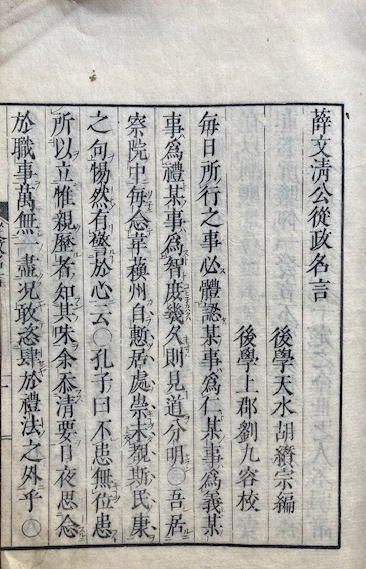 薛文淸公從政名言
後學天水胡纘宗編
後學上郡劉九容校
每日所行之事必體認某事爲仁某事爲義某
事爲禮某事爲智庶幾久則見道分明○吾居
察院中每念韋蘓州自慙居處崇未覩斯民康
之句惕然有警於心云○孔子曰不患無位患
所以立惟親歷者知其味余忝淸要日夜思念
於職事萬無一盡况敢恣肆於禮法之外乎○